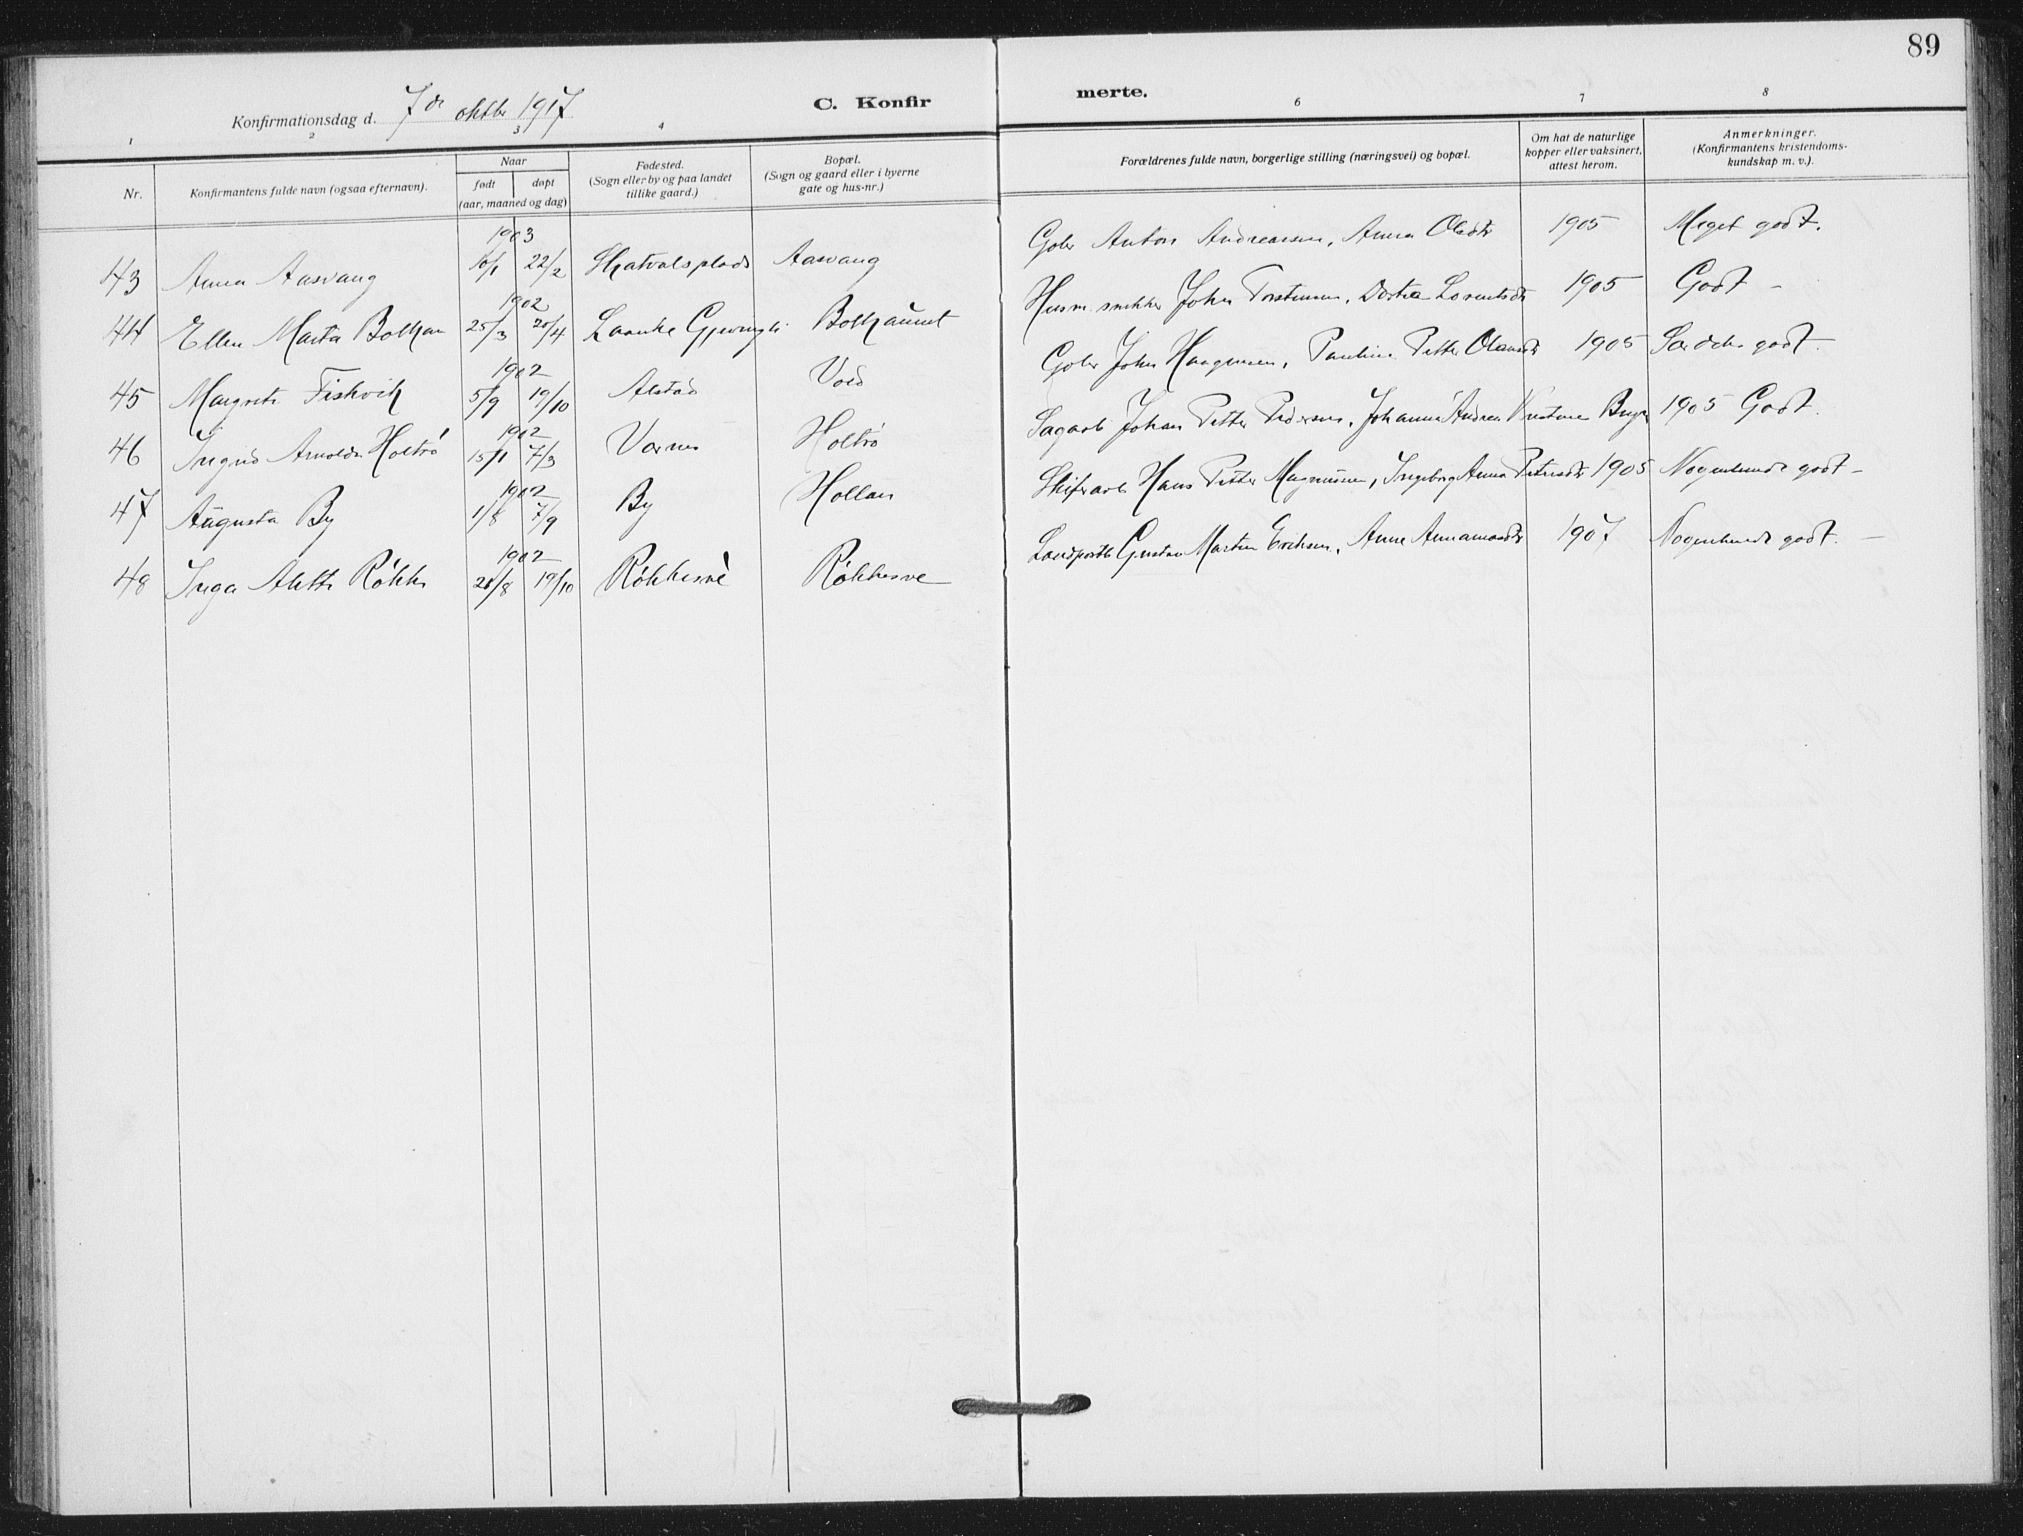 89
Konfirmationsdag d. 7de oktbr 1917.
C. Konfirmerte.
1 2 3 4 6 7 8
Nr.
Konfirmantens fulde navn (ogsaa efternavn).
Naar
født døpt
(aar, maaned og dag)
Fødested.
(Sogn eller by og paa landet
tillike gaard.)
Bopæl.
(Sogn og gaard eller i byerne
gate og hus-nr.)
Forældrenes fulde navn, borgerlige stilling (næringsvei) og bopæl.
Om hat de naturlige
kopper eller vaksinert,
attest herom.
Anmerkninger.
(Konfirmantens kristendoms-
kundskap m. v.).
1903
43 Anna Aasvang 10/1 22/2 Skatvalsplads Aasvang Gbr Anton Andreassen, Anna Olsdtr 1905 Meget godt.
1902
44 Ellen Marta Bolkan 25/3 20/4 Laanke Bolkaunet Husm. snekker Johan Torstensen, Dortea Lorentsdtr 1905 Godt -
1902
45 Margrete Fiskvik 5/9 19/10 Alstad Vold Gbr John Haagensen, Pauline Petter Olausdtr 1905 Særdeles godt.
1902
46 Ingrid Arnolda Holtrø 15/1 7/3 Værnes Holtrø Sagarb Johan Petter Pedersen, Johanna Andrea Kristine 1905 Godt.
1902
47 Augusta By 1/8 7/9 By Hollan Skiferarb Hans Petter Magnussen, Ingeborg Anna Petersdtr 1905 Nogenlunde godt -
1902
48 Inga Alette Røkke 28/8 19/10 Røkkesve Røkkesve Landpostb Gustav Martin Eriksen, Anne Annamasdtr 1907 Nogenlunde godt. -